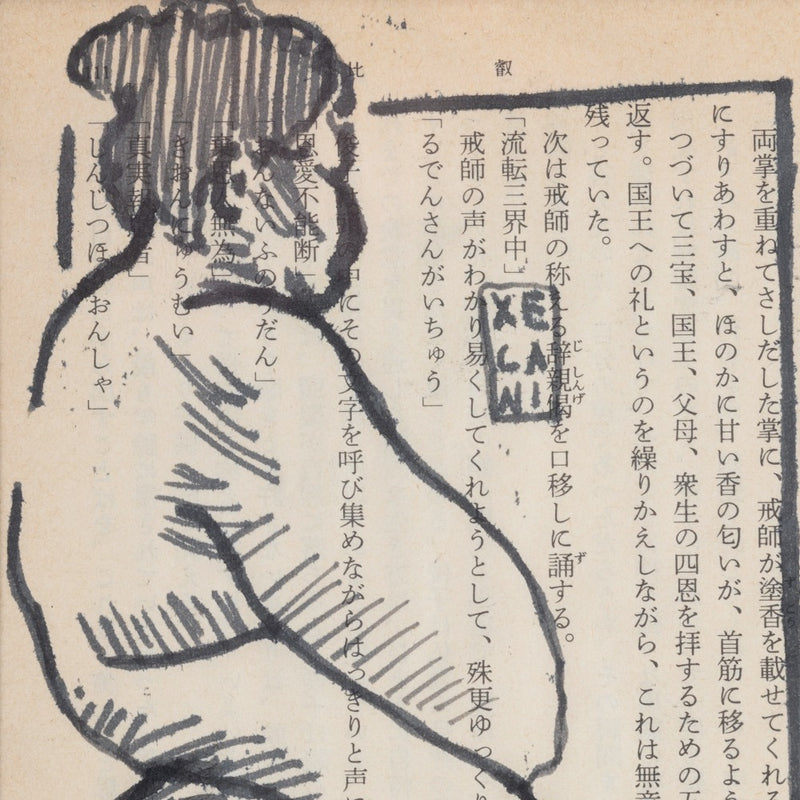 両掌を重ねてさしだした掌に、戒師が塗香を載せてくれる
にすりあわすと、ほのかに甘い香の匂いが、首筋に移るよう
つづいて三宝、国王、父母、衆生の四恩を拝するための五
返す。国王への礼というのを繰りかえしながら、これは無意
残っていた。
次は戒師の称える辞親偈を口移しに誦する。
「流転三界中」
戒師の声がわかり易くしてくれようとして、殊更ゆっくり
「るでんさんがいちゅう」
俊子は頭の中にその文字を呼び集めながらはっきりと声に
「恩愛不能断」
「おんないふのうだん」
「棄恩入無為」
「きおんにゅうむい」
「真実報恩者」
「しんじつほうおんしゃ」
比
叡
111
XE
CA
NI